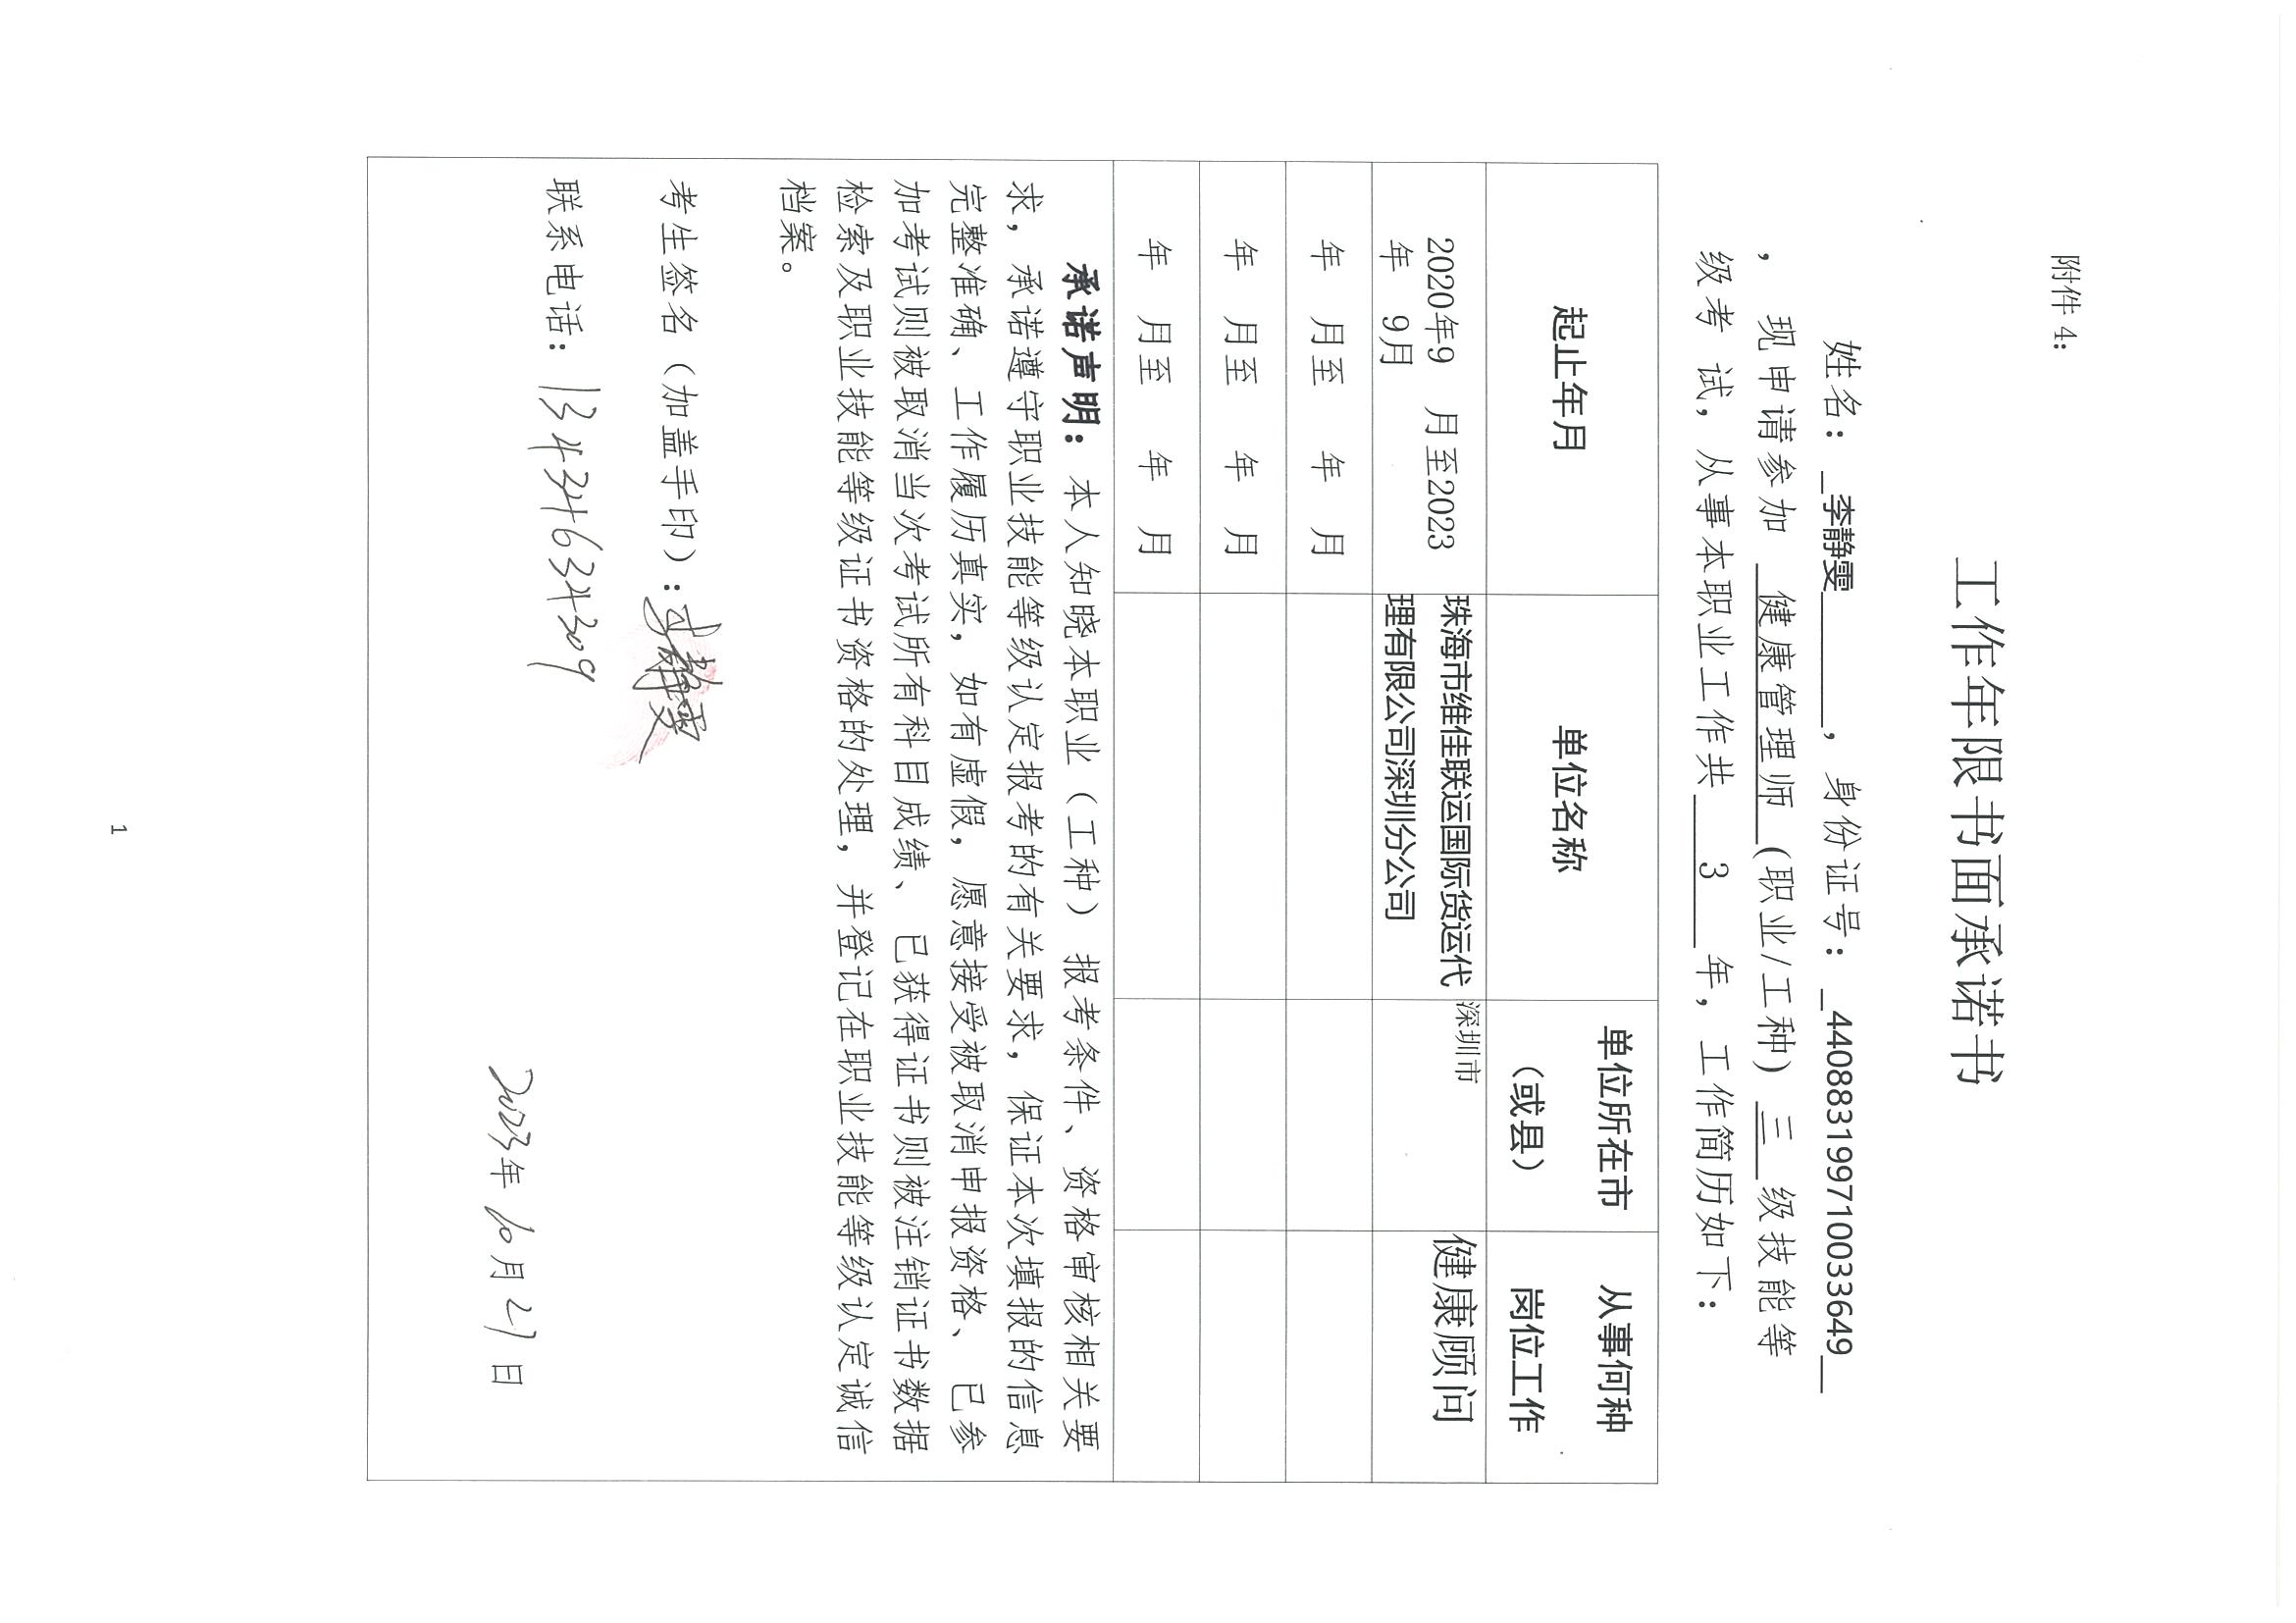 附件 4：
工作年限书面承诺书
姓名：李静雯，身份证号：440883199710033649
，现申请参加 健康管理师 (职业/工种) 三 级技能等
级考 试，从事本职业工作共 3 年，工作简历如下：
起止年月 单位名称 单位所在市（或县） 从事何种岗位工作
2020年9 月至2023 珠海市维佳联运国际货运代 深圳市 健康顾问
年 9月 理有限公司深圳分公司
年 月至 年 月
年 月至 年 月
年 月至 年 月
承诺声明：本人知晓本职业（工种）报考条件、资格审核相关要
求，承诺遵守职业技能等级认定报考的有关要求，保证本次填报的信息
完整准确、工作履历真实，如有虚假，愿意接受被取消申报资格、已参
加考试则被取消当次考试所有科目成绩、已获得证书则被注销证书数据
检索及职业技能等级证书资格的处理，并登记在职业技能等级认定诚信
档案。
考生签名（加盖手印）：李静雯
联系电话：
2023年 10月 27日
1